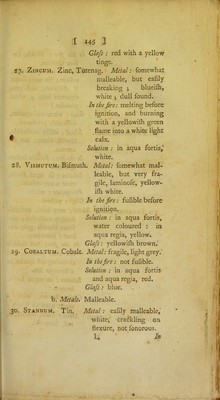 [ 245 ]
Glaſs : red with a yellow
tinge.
27. ZINCUM. Zinc, Tutenag. Metal : ſomewhat
malleable, but eaſily
breaking ; blueiſh,
white ; dull ſound.
In the fire : melting before
ignition, and burning
with a yellowiſh green
flame into a white light
calx.
Solution : in aqua fortis,
white.
28. VISMUTUM. Biſmuth. Metal : ſomewhat mal-
leable, but very fra-
gile, laminoſe, yellow-
iſh white.
In the fire : fuſible before
ignition.
Solution : in aqua fortis,
water coloured : in
aqua regia, yellow.
Glaſs : yellowiſh brown.
29. COBALTUM. Cobalt. Metal : fragile, light grey.
In the fire : not fuſible.
Solution : in aqua fortis
and aqua regia, red.
Glaſs : blue.
b. Metals. Malleable.
30. STANNUM. Tin. Metal : eaſily malleable,
white, crackling on
flexure, not ſonorous.
In